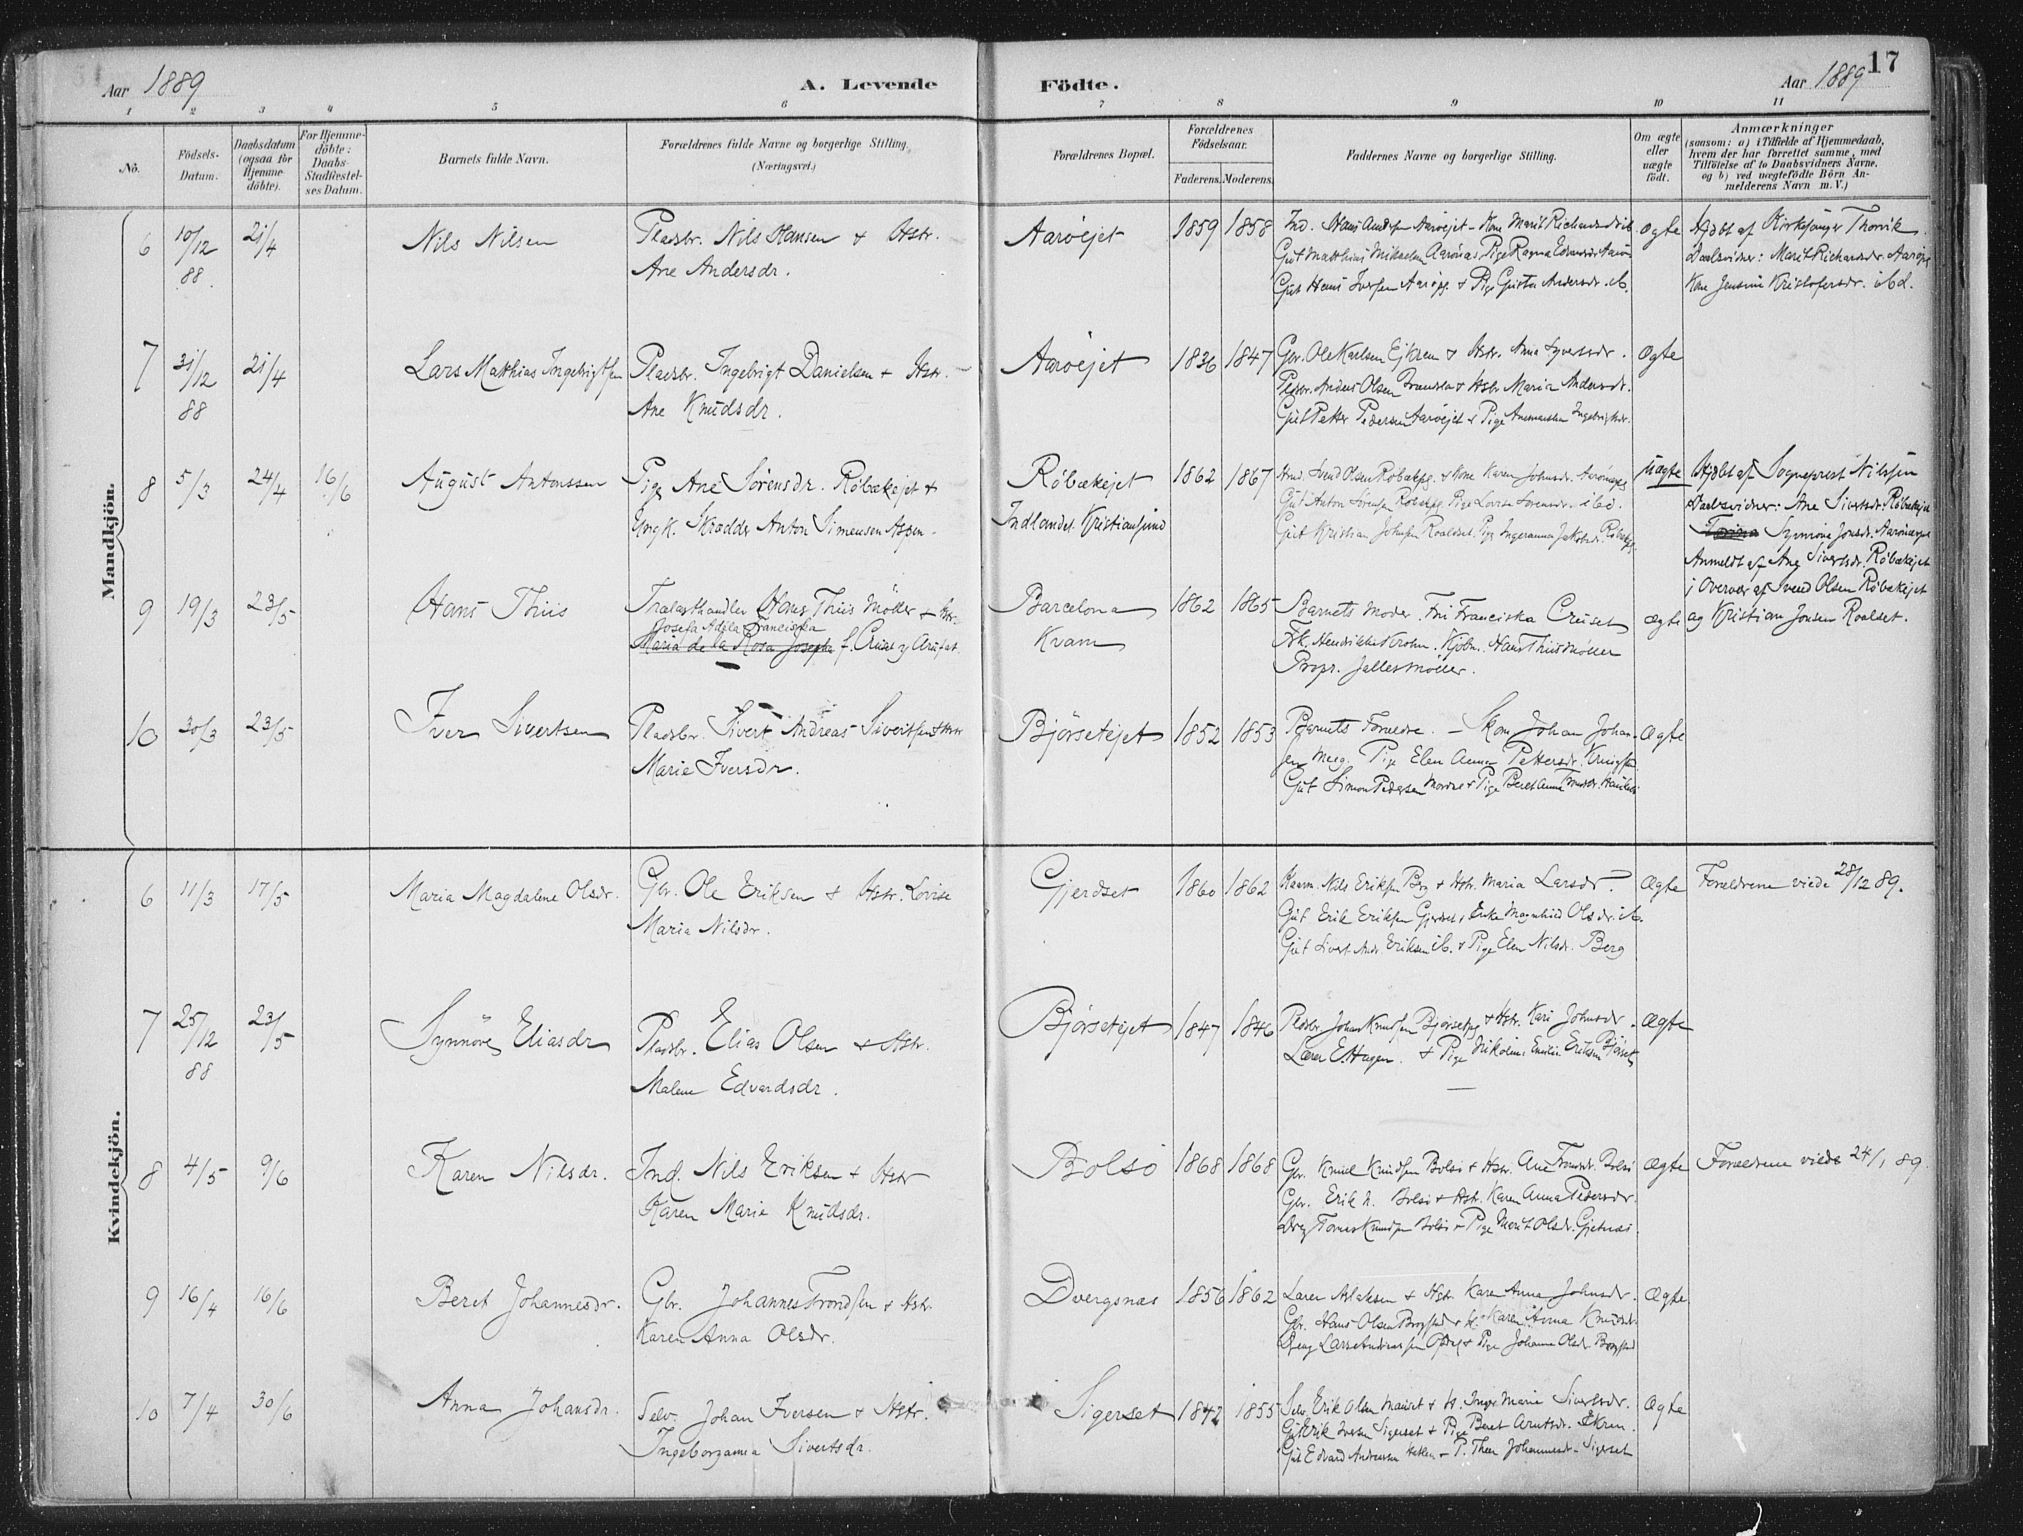 Aar 1889 A. Levende Födte. Aar 1889 17
1 2 3 4 5 6 7 8 9 10 11
No. Födsels-Datum. Daabsdatum (ogsaa for Hjemmedöbte). For Hjemmedöbte: Daabs-Stadfæstelses Datum. Barnets fulde Navn. Forældrenes fulde Navne og borgerlige Stilling. (Næringsvei.) Forældrenes Bopæl. Forældrenes Födselsaar. Faderens. Moderens. Faddernes Navne og borgerlige Stilling. Om ægte eller uægte födt. Anmærkninger (saasom: a) i Tilfælde af Hjemmedaab, hvem der har forrettet samme, med Tilföielse af to Daabsvidners Navne, og b) ved uægtefödte Börn Anmelderens Navn m. V.)
Mandkjön.
6 10/12 88 21/4 Nils Nilsen
Pladsbr. Nils Hansen & Hstr.
Ane Andersdr.
Aarøejet 1859 1858
Ind. Hans Anders. Aarøejet - Kone Marit Richardsdr ib
Gut Matthias Mikaelsen Aarønæs Pige Ragna
Gut Hans Iversen Aarøpg. & Pige Gusta Andersdr. ib.
ægte
Hjdbt af Kirksanger Thorvik.
Daabsvidner: Marit Richardsdr. Aarøpg
Kone Jensine Kristofersdr. ibd.
7 31/12 88 21/4 Lars Matthias Ingebrigtsen
Pladsbr. Ingebrigt Danielsen & Hstr.
Ane Knudsdr.
Aarøejet 1836 1847
Gbr. Ole Karlsen Ejkrem & Hstr. Anna Syversdr.
Pladsbr. Anders Olsen & Hstr Maria Andersdr.
Gut Petter Pedersen Aarøejet & Pige Ingebrigtsdr.
Ægte
8 5/3 24/4 16/6 August Antonssen
Pige Ane Sørensdr. Røbækejet &
Ungk. Skrædder Anton Simensen Aspen-
Røbækejet
Indlandet. Kristiansund
1862 1867
Hmd. Svend Olsen Røbækpg. & Kone Karen Johnsdr. Aarønæspg
Gut Anton Sørensen Røbækpg. Pige Lovise Sørensdr. ibd.
Gut Kristian Johnsen Roaldset. Pige Ingeranna Jakobsdr. Røbækpg.
uægte
Hjdbt af Sogneprest Nilssen
Daabsvidner: Ane Sivertsdr. Røbækejet
Synnøve Jonsdr. Aarønæspg
Anmeldt af Ane Sivertsdr. Røbækejet
i Overvær af Svend Olsen Røbækejet
og Kristian Jonsen Roaldset.
9 19/3 23/5 Hans Thiis
Trælasthandler Hans Thiis Møller & Hstr.
Josefa Adela Franciska
Maria de la Rosa Josepha f. Cruset y Arufat.
Barcelona
Kvam
1862 1865
Barnets Moder. Fru Franciska Cruset
Frk. Hendrikke Krohn. Kjøbm. Hans Thiis Møller
Propr. Jalles Møller.
ægte
10 30/3 23/5 Iver Sivertsen
Pladsbr. Sivert Andreas Sivertsen & Hstr
Marie Iversdr.
Bjørsetejet 1852 1853
Barnets Forældre. - Skom Johan Johan-
sen Pige Elen Anna Pettersdr.
Gut Simon Pedersen & Pige Beret Anna
Ægte
Kvindekjön.
6 11/3 17/5 Maria Magdalene Olsdr.
Gbr. Ole Eriksen & Hstr. Lovise
Maria Nilsdr.
Gjerdset 1860 1862
Kaarm. Nils Eriksen Berg & Hstr. Maria Larsdr.
Gut Erik Eriksen Gjerdset, Enke Magnhild Olsdr. ib.
Gut Sivert Andr. Eriksen ib. & Pige Elen Nilsdr. Berg
Ægte
Forældrene viede 28/12 89.
7 25/12 88 23/5 Synnöve Eliasdr
Pladsbr. Elias Olsen & Hstr.
Malene Edvardsdr.
Bjørsetejet 1847 1846
Pladsbr. Johan Knudsen Bjørsetpg & Hstr. Kari Johnsdr.
Lærer E. Hagen. & Pige Nikoline Emilie Eriksen Bjørset
Ægte
8 4/5 9/6 Karen Nilsdr.
Ind. Nils Eriksen & Hstr
Karen Marie Knudsdr.
Bolsö 1868 1868
Gbr. Knud Knudsen Bolsø & Hstr. Ane Bolsø
Gbr. Erik N. Bolsø & Hstr. Karen Anna Pedersdr.
Dreng Tomas Knudsen Bolsø & Pige Marit Olsdr.
Ægte
Forældrene viede 24/1 89.
9 16/4 16/6 Beret Johannesdr.
Gbr. Johannes Trondsen & Hstr.
Karen Anna Olsdr.
Dvergsnæs 1856 1862
Lærer Aslaksen & Hstr. Karen Anna Johnsdr.
Gbr. Hans Olsen & H. Karen Anna Knudsdr.
Dreng Lars & Pige Johanna Olsdr.
Ægte
10 7/4 30/6 Anna Johansdr.
Selv. Johan Iversen & Hstr.
Ingeborganna Sivertsdr.
Sigerset 1842 1855
Selv. Erik Olsen Mauset & H. Inge Marie Sivertsdr.
Gut Erik Iversen Sigerset & Pige Beret Arntsdr. Ekren.
Gut Edvard Andreassen & P. Thea Johannesdr. Sigerset
Ægte